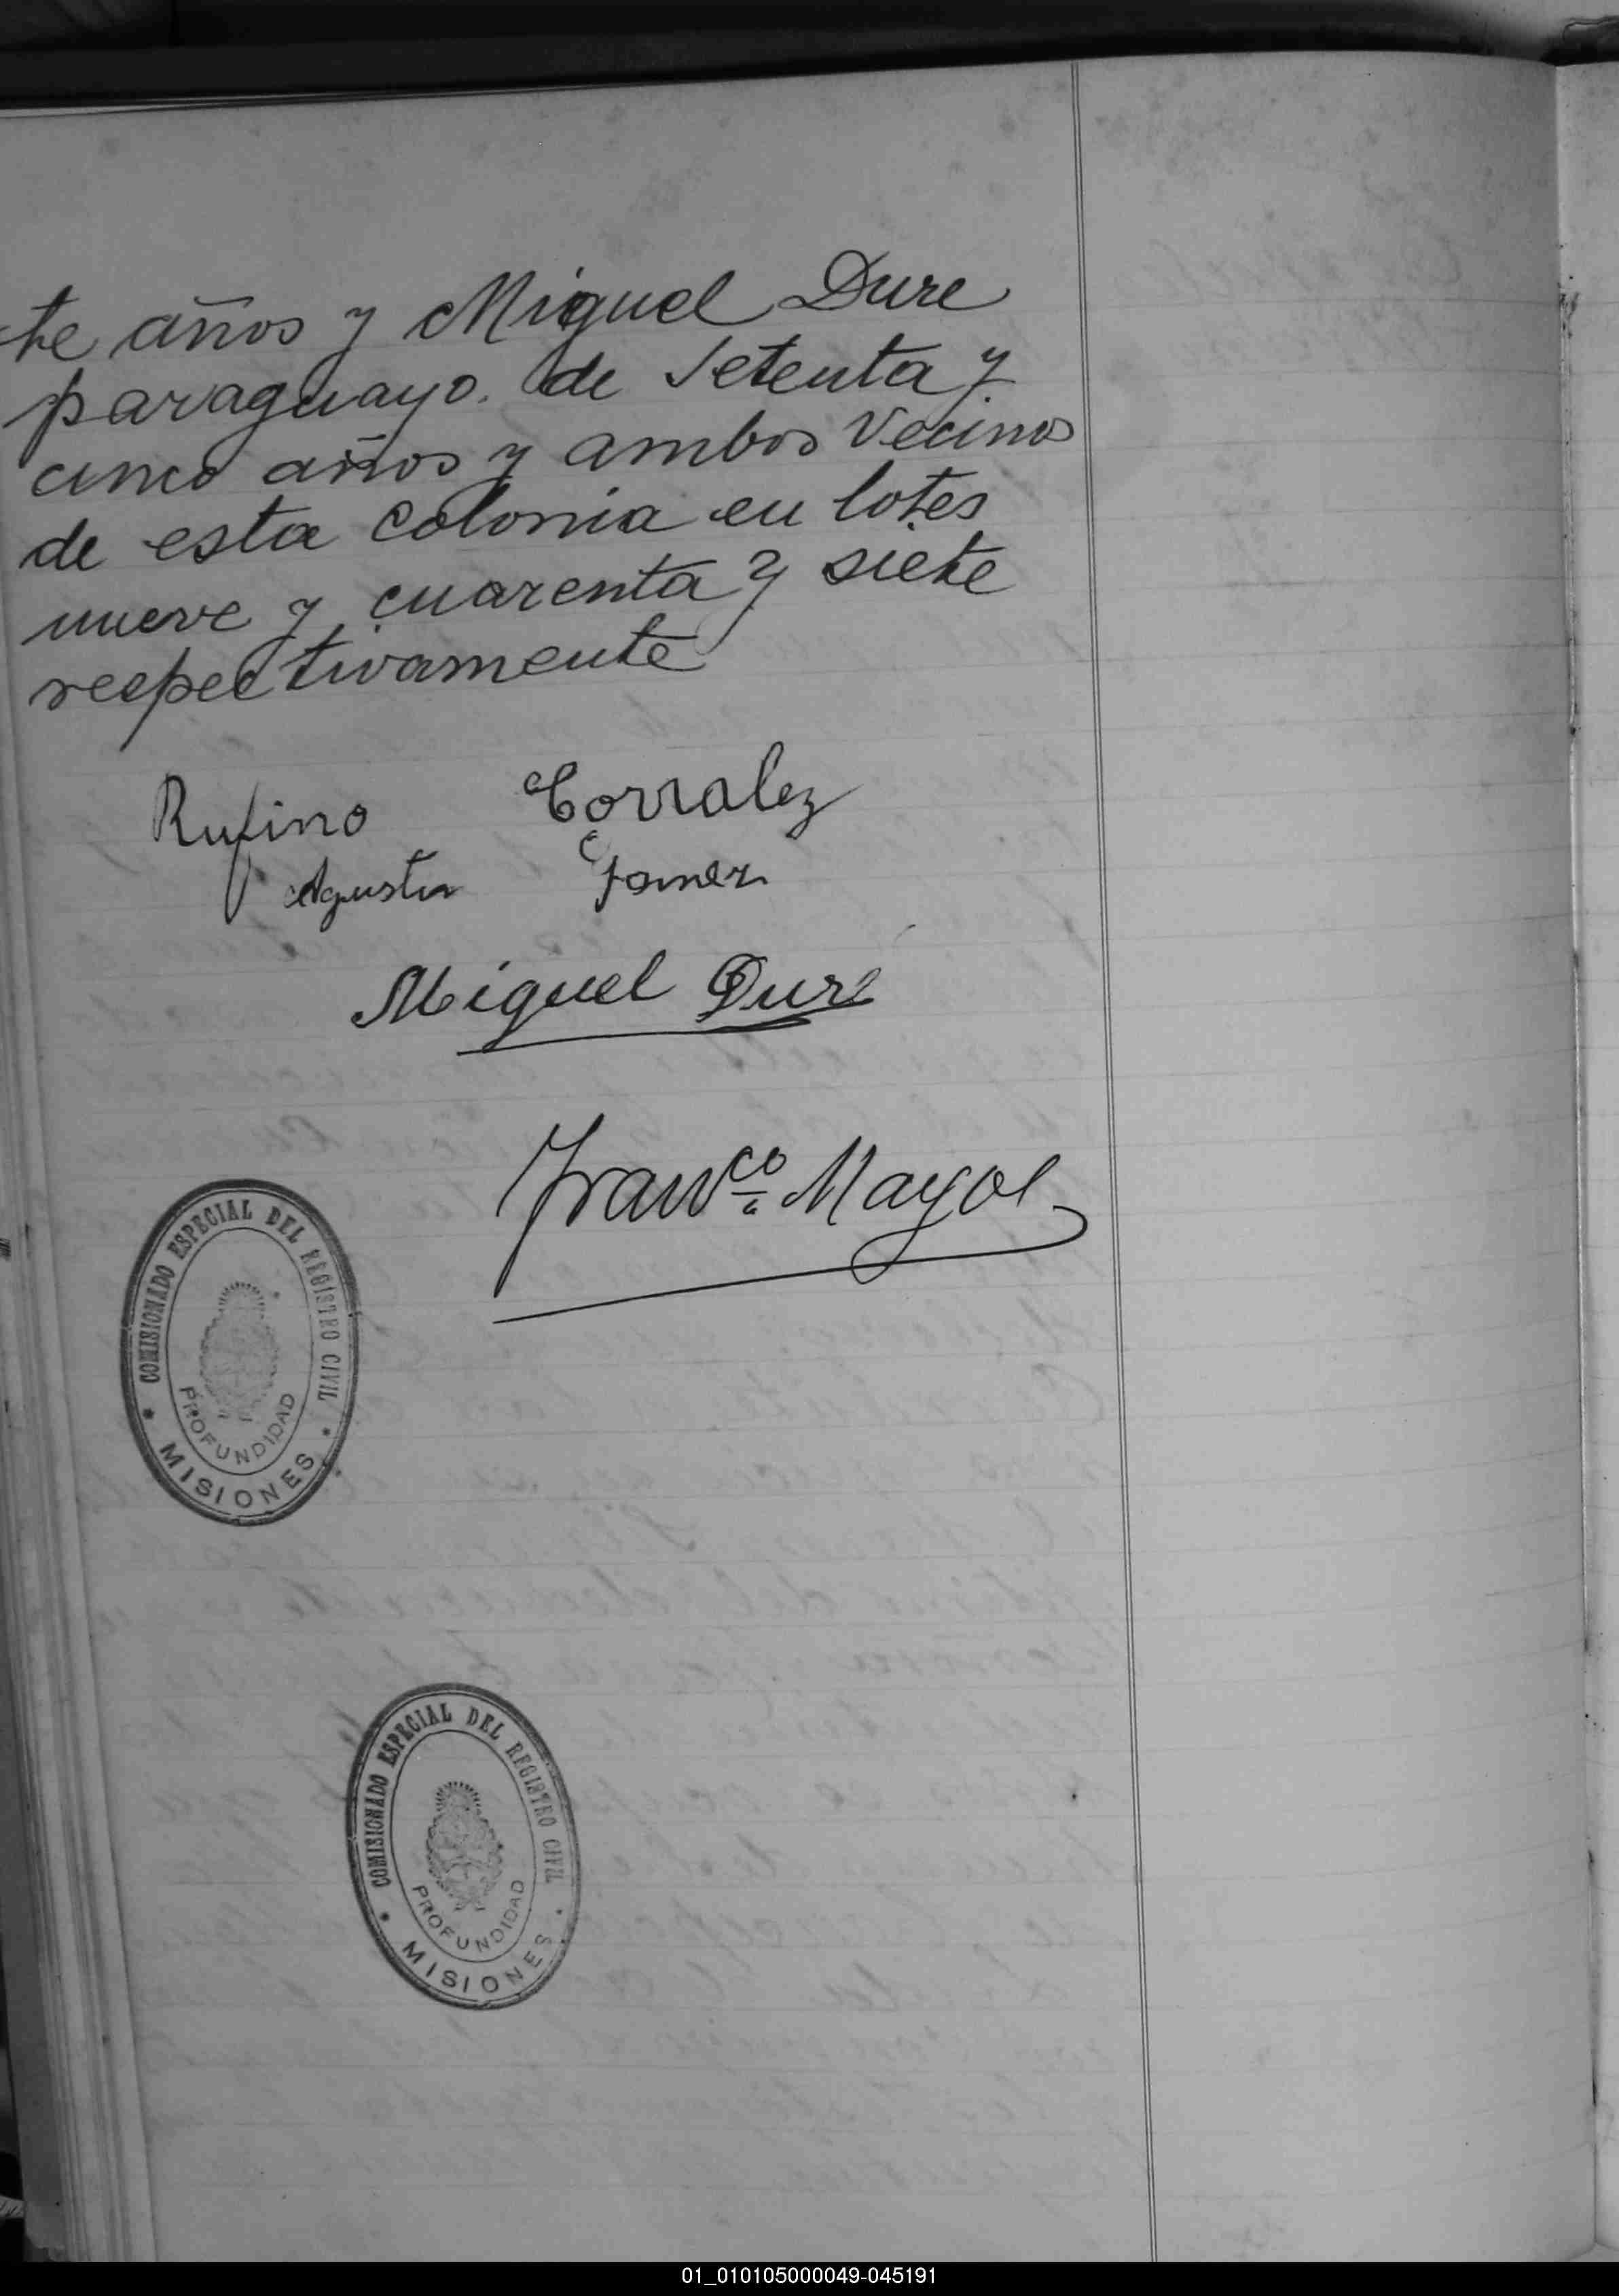 te años y Miguel Dure
paraguayo. de Setenta y
cinco años y ambos Vecinos
de esta Colonia en lotes
nueve y cuarenta y siete
respectivamente
Rufino Corralez
Agustin Gomez
Miguel Duré
Franco Mayol
COMISIONADO ESPECIAL DEL REGISTRO CIVIL
PROFUNDIDAD
* MISIONES *
COMISIONADO ESPECIAL DEL REGISTRO CIVIL
PROFUNDIDAD
* MISIONES *
01_010105000049-045191